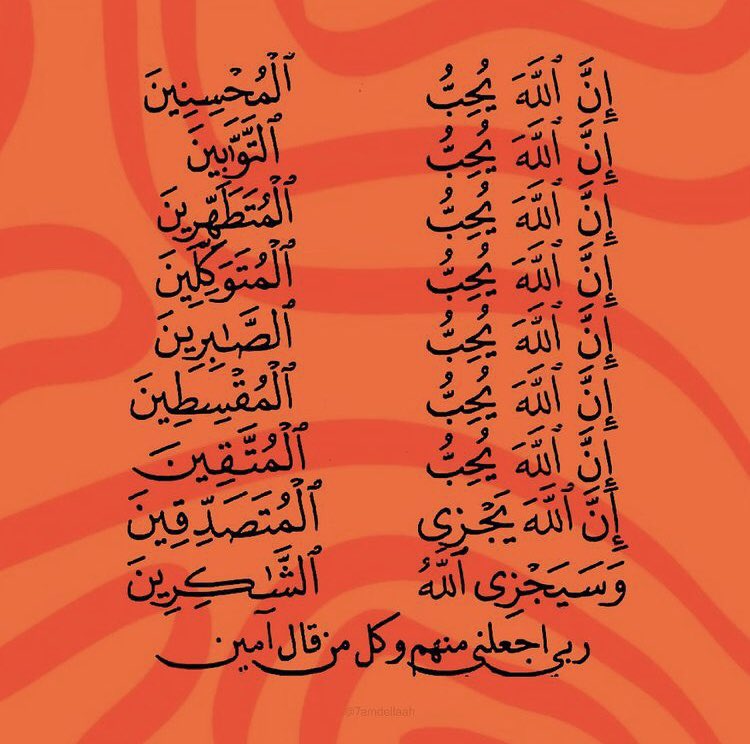 إِنَّ ٱللَّهَ يُحِبُّ ٱلْمُحْسِنِينَ
إِنَّ ٱللَّهَ يُحِبُّ ٱلتَّوَّٰبِينَ
إِنَّ ٱللَّهَ يُحِبُّ ٱلْمُتَطَهِّرِينَ
إِنَّ ٱللَّهَ يُحِبُّ ٱلْمُتَوَكِّلِينَ
إِنَّ ٱللَّهَ يُحِبُّ ٱلصَّـٰبِرِينَ
إِنَّ ٱللَّهَ يُحِبُّ ٱلْمُقْسِطِينَ
إِنَّ ٱللَّهَ يُحِبُّ ٱلْمُتَّقِينَ
إِنَّ ٱللَّهَ يَجْزِى ٱلْمُتَصَدِّقِينَ
وَسَيَجْزِى ٱللَّهُ ٱلشَّـٰكِرِينَ
ربي اجعلني منهم وكل من قال آمين
@7amdellaah